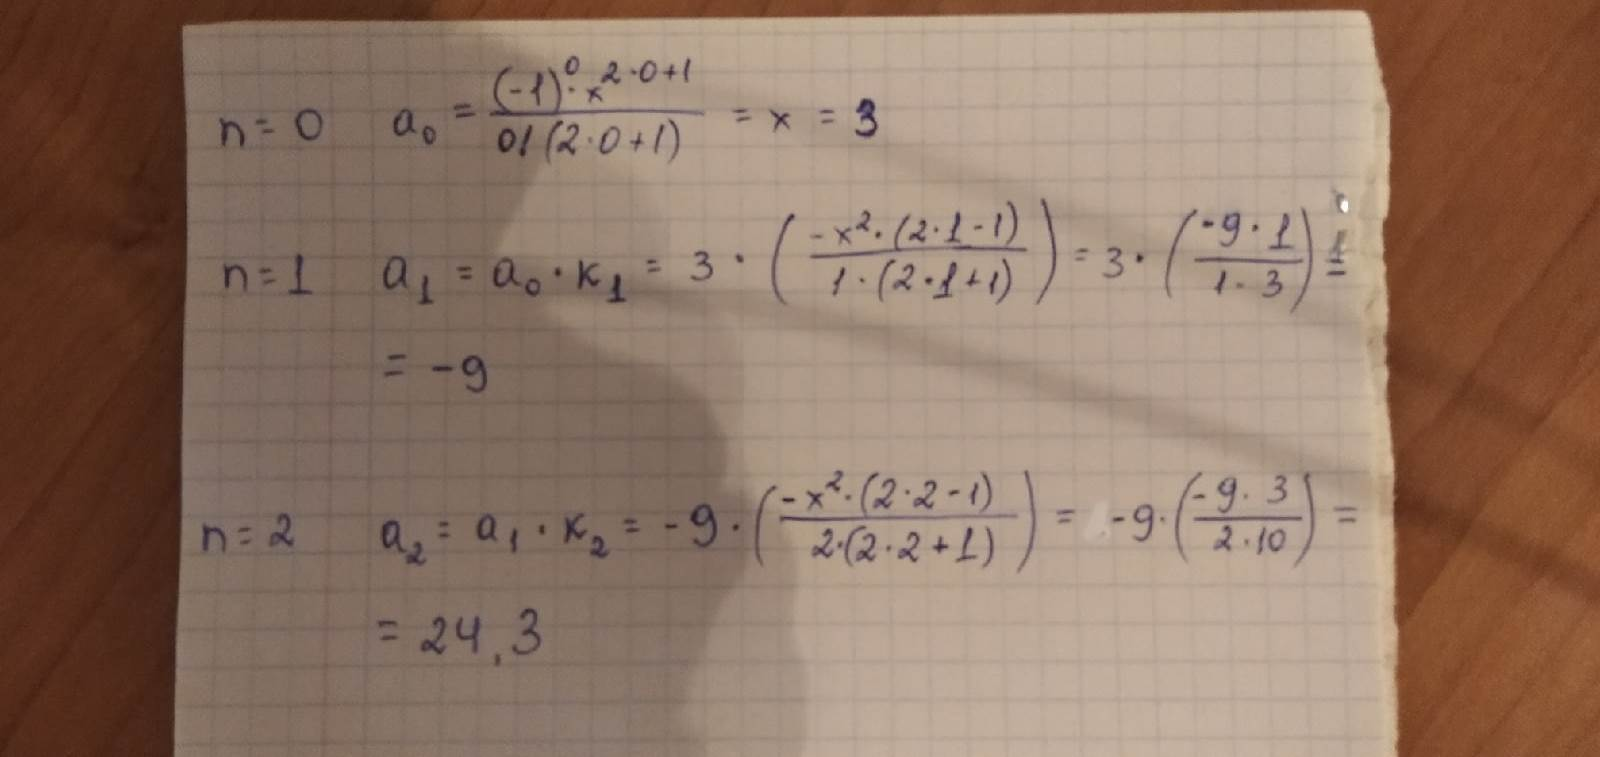 n = 0 a₀ = ((-1)⁰ · x^(2·0+1)) / (0! (2·0+1)) = x = 3
n = 1 a₁ = a₀ · к₁ = 3 · ((-x² · (2·1-1)) / (1 · (2·1+1))) = 3 · ((-9 · 1) / (1 · 3)) =
= -9
n = 2 a₂ = a₁ · к₂ = -9 · ((-x² · (2·2-1)) / (2·(2·2+1))) = -9 · ((-9 · 3) / (2·10)) =
= 24,3